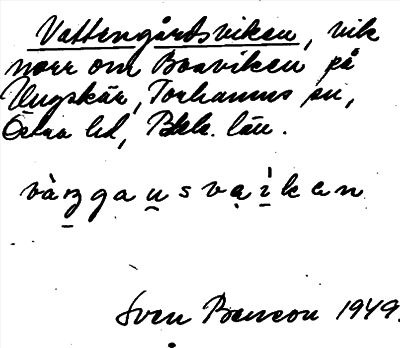 Vattengårdsviken, vik
norr om Boaviken på
Ungskär, Torhamns sn,
Östra hd, Blek. län.
vàŋgau̠svại̠kan
Sven Benson 1949.